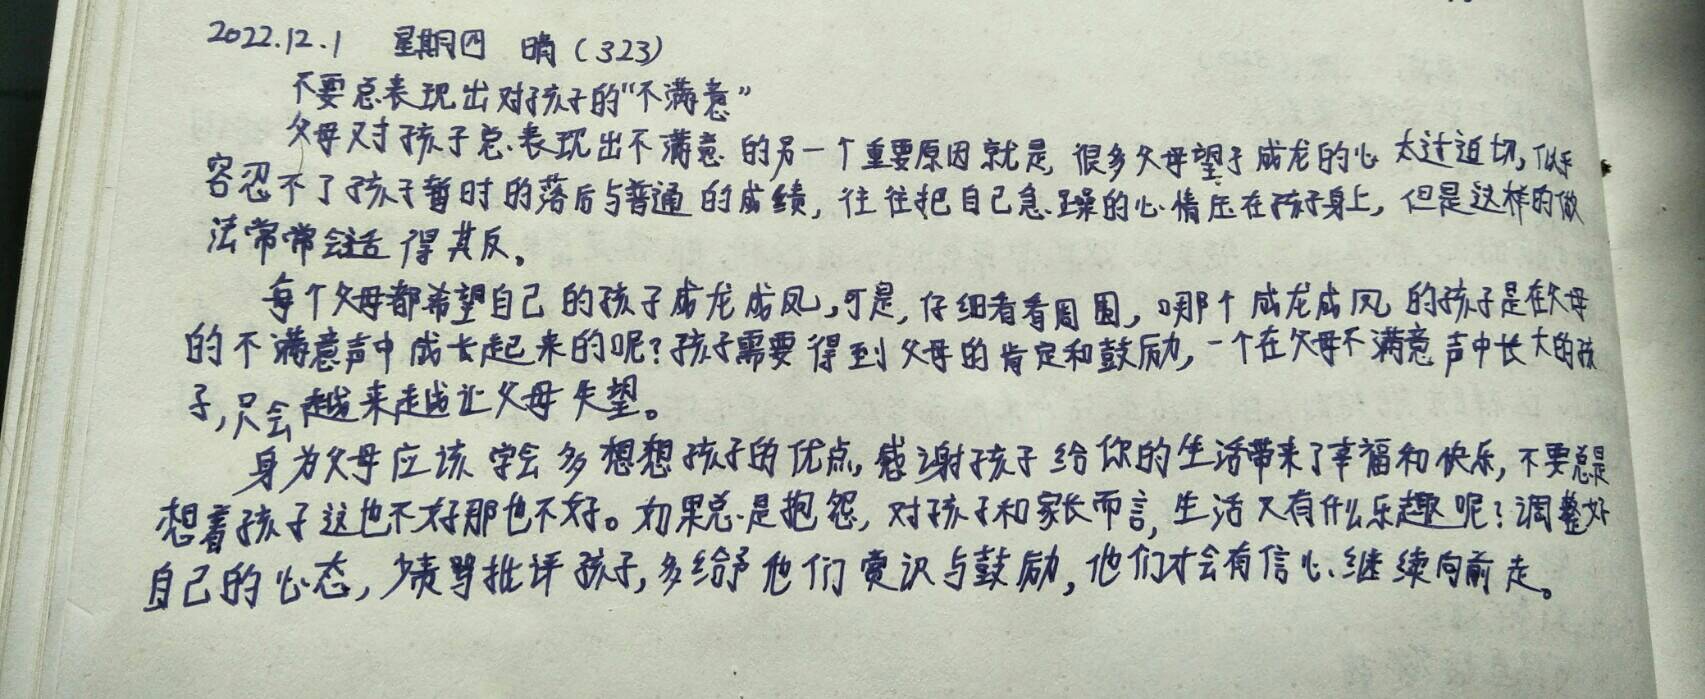 2022.12.1 星期四 晴(323)
不要总表现出对孩子的“不满意”
父母对孩子总表现出不满意的另一个重要原因就是,很多父母望子成龙的心太过迫切,似乎
容忍不了孩子暂时的落后与普通的成绩,往往把自己急躁的心情压在孩子身上,但是这样的做
法常常会适得其反。
每个父母都希望自己的孩子成龙成凤,可是,仔细看看周围,哪个成龙成凤的孩子是在父母
的不满意声中成长起来的呢?孩子需要得到父母的肯定和鼓励,一个在父母不满意声中长大的孩
子,只会越来越让父母失望。
身为父母应该学会多想想孩子的优点,感谢孩子给你的生活带来了幸福和快乐,不要总是
想着孩子这也不好那也不好。如果总是抱怨,对孩子和家长而言,生活又有什么乐趣呢?调整好
自己的心态,少责骂批评孩子,多给予他们赏识与鼓励,他们才会有信心继续向前走。